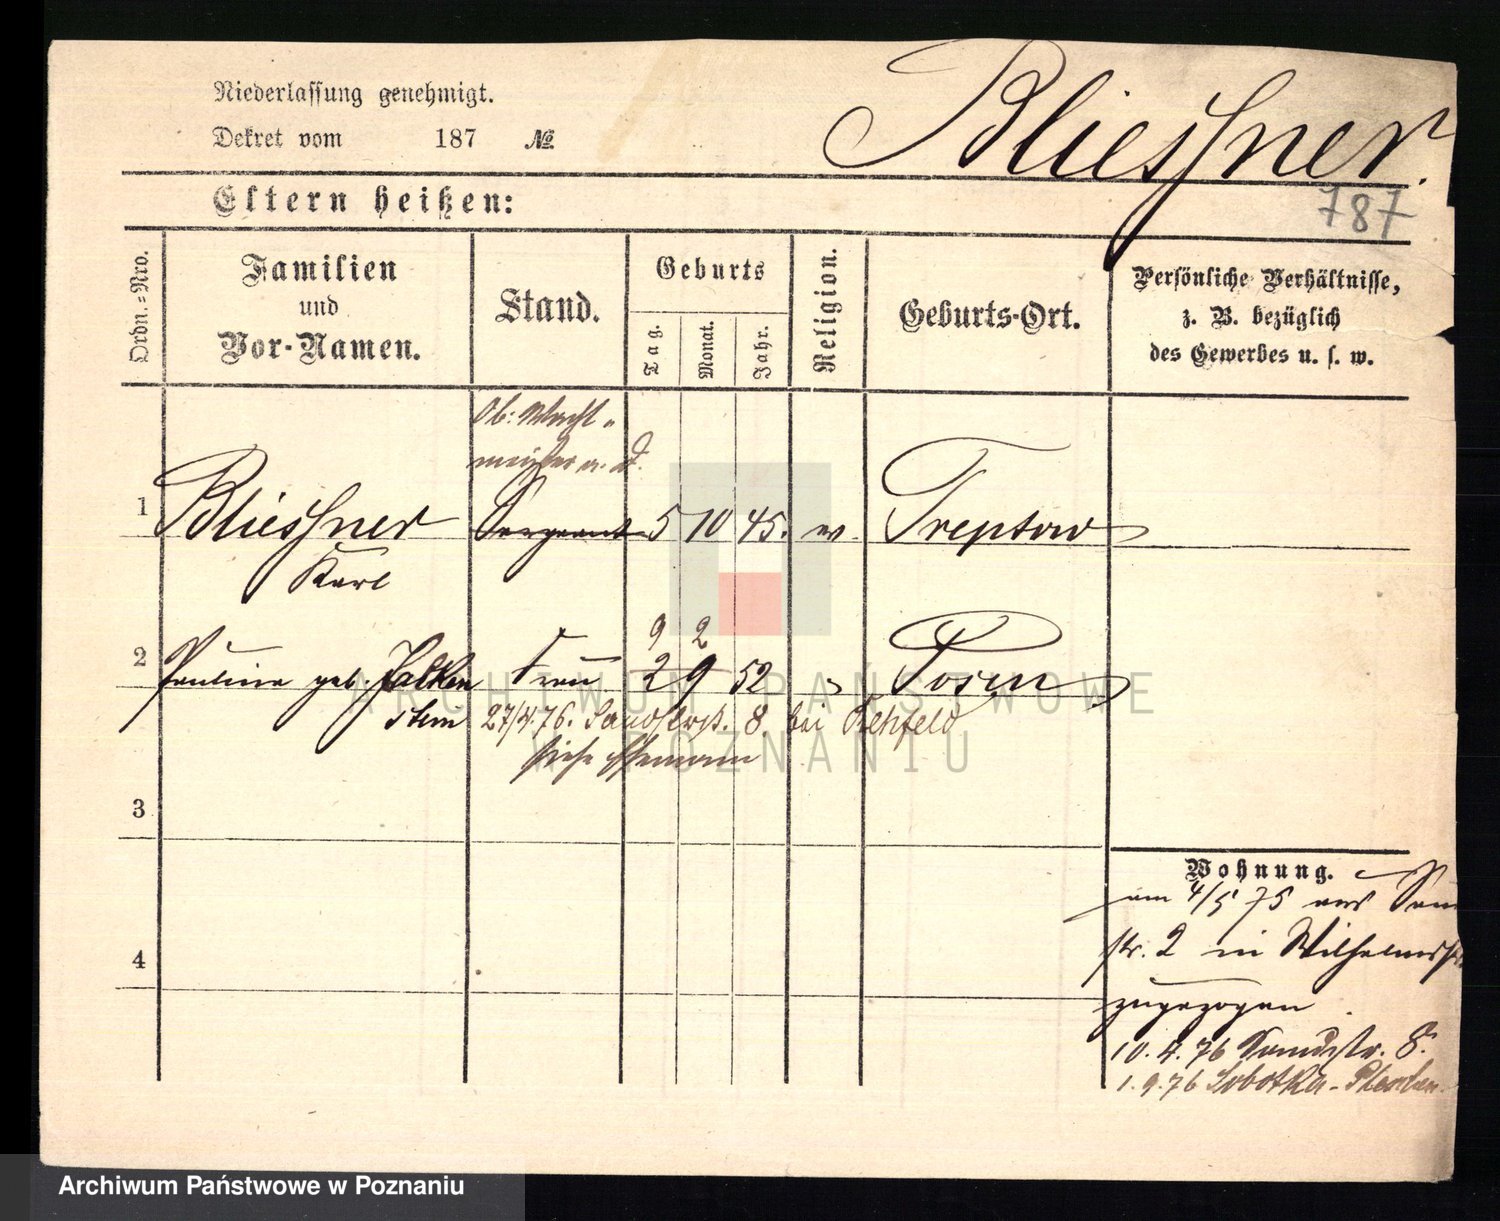 Niederlassung genehmigt.
Dekret vom 187 №
Bliesner.
787
Eltern heißen:
Ordn.=Nro.
Familien
und
Vor-Namen.
Stand.
Geburts
Tag.
Monat.
Jahr.
Religion.
Geburts-Ort.
Persönliche Verhältnisse,
z. B. bezüglich
des Gewerbes u. s. w.
Ob: Wacht-
meister a. D.
1 Bliesner Sergeant 5 10 45. ev. Treptow
Karl
9 2
2 Pauline geb. Falken Frau 29 52 Posen
stein 27/4.76. Sandstrß. 8. bei Rehfeld
siehe Ehemann
3
4
Wohnung.
am 4/5 75 aus
str. 2 in Wilhelmsstr
zugezogen
10.4.76 Sandstr. 8.
1.9.76 Sobotka-
ARCHIWUM PAŃSTWOWE
W POZNANIU
Archiwum Państwowe w Poznaniu